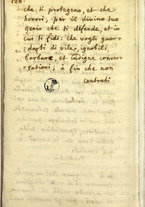 120.
che, ti protegeno, et che
honori, per il divino tuo
genio che ti defende, et in
cui ti fidi: che vogli guar-
darti di vile, ignobili,
barbare, et indigne conver-
sationi; à fin che non
contrati